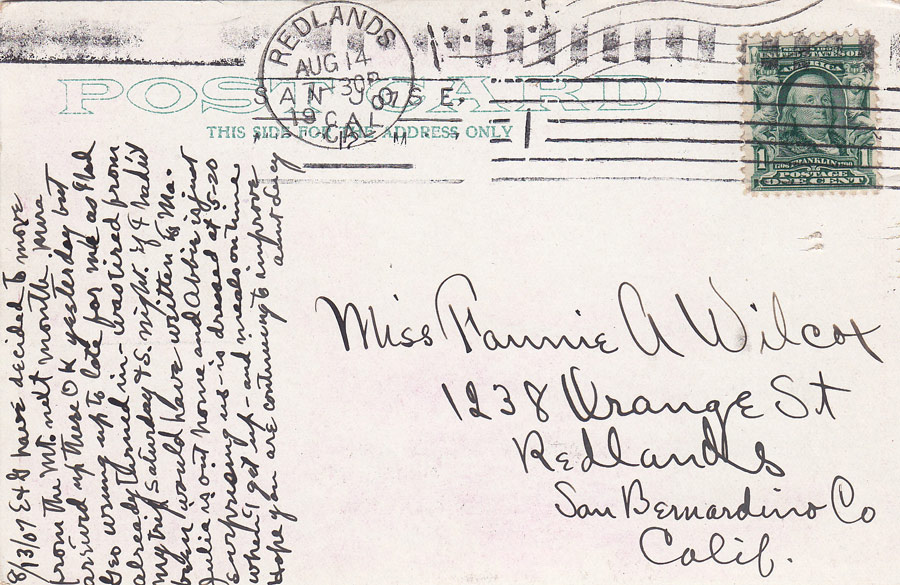 POST CARD
THIS SIDE FOR THE ADDRESS ONLY
REDLANDS
AUG 14
30P
07
CAL
SAN JOSE.
19
CAL
12 M
1
SERIES 1902
AMERICA
1706 FRANKLIN 1790
POSTAGE
1 ONE CENT
Miss Fannie A Wilcox
1238 Orange St
Redlands
San Bernardino Co
Calif.
8/13/07 E & G have decided to move
from the Mt. next month.
arrived up there OK yesterday but
Geo wrung up to late for me as I had
already turned in - was tired from
my trip Saturday & S. night. If I hadn't
been would have written to Ma.
Julia is out home and Abbie is just
surprising us - is dressed at 5-20
when I get up - and meals on time
Hope you are continuing to improve
aunt Lucy